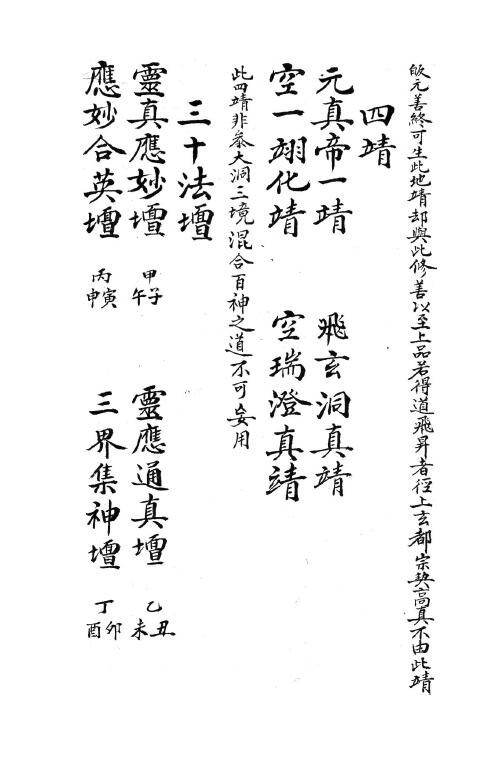 皈元善終可生此地靖却與此修善以至上品若得道飛昇者徑上玄都宗契高真不由此靖
四靖
元真帝一靖 飛玄洞真靖
空一翊化靖 空瑞澄真靖
此四靖非叅大洞三境混合百神之道不可妄用
三十法壇
靈真應妙壇 甲子午 靈應通真壇 乙丑未
應妙合英壇 丙寅申 三界集神壇 丁卯酉